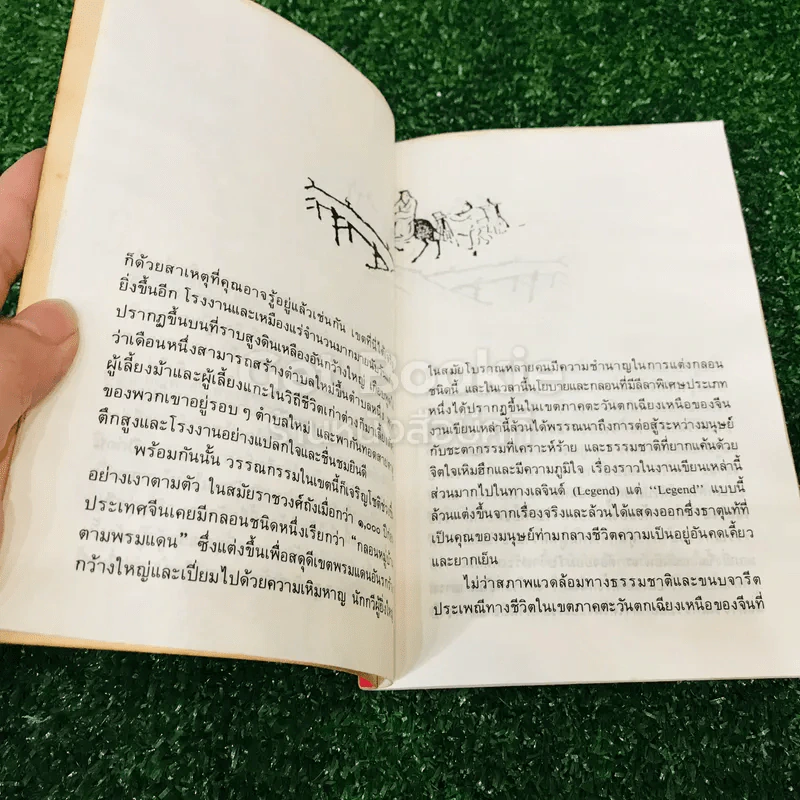 ก็ด้วยสาเหตุที่คุณอาจรู้อยู่แล้วเช่นกัน เขตที่
ยิ่งขึ้นอีก โรงงานและเหมืองแร่จำนวนมากมาย
ปรากฏขึ้นบนที่ราบสูงดินเหลืองอันกว้างใหญ่
ว่าเดือนหนึ่งสามารถสร้างตำบลใหม่ขึ้นตำบลหนึ่ง
ผู้เลี้ยงม้าและผู้เลี้ยงแกะในวิถีชีวิตเก่าต่างก็มา
ของพวกเขาอยู่รอบ ๆ ตำบลใหม่ และพากัน
ตึกสูงและโรงงานอย่างแปลกใจและชื่นชมยินดี
พร้อมกันนั้น วรรณกรรมในเขตนี้ก็เจริญ
อย่างเงาตามตัว ในสมัยราชวงศ์ถังเมื่อกว่า ๑,๐๐๐ ปี
ประเทศจีนเคยมีกลอนชนิดหนึ่งเรียกว่า “กลอน
ตามพรมแดน” ซึ่งแต่งขึ้นเพื่อสดุดีเขตพรมแดนอัน
กว้างใหญ่และเปี่ยมไปด้วยความเหิมหาญ นักกวีผู้
ในสมัยโบราณหลายคนมีความชำนาญในการแต่งกลอน
ชนิดนี้ และในเวลานี้นโยบายและกลอนที่มีลีลาพิเศษประเภท
หนึ่งได้ปรากฏขึ้นในเขตภาคตะวันตกเฉียงเหนือของจีน
งานเขียนเหล่านี้ล้วนได้พรรณนาถึงการต่อสู้ระหว่างมนุษย์
กับชะตากรรมที่เคราะห์ร้าย และธรรมชาติที่ยากแค้นด้วย
จิตใจเหิมฮึกและมีความภูมิใจ เรื่องราวในงานเขียนเหล่านี้
ส่วนมากไปในทางเลจินด์ (Legend) แต่ “Legend” แบบนี้
ล้วนแต่งขึ้นจากเรื่องจริงและล้วนได้แสดงออกซึ่งธาตุแท้ที่
เป็นคุณของมนุษย์ท่ามกลางชีวิตความเป็นอยู่อันคดเคี้ยว
และยากเย็น
ไม่ว่าสภาพแวดล้อมทางธรรมชาติและขนบจารีต
ประเพณีทางชีวิตในเขตภาคตะวันตกเฉียงเหนือของจีนที่